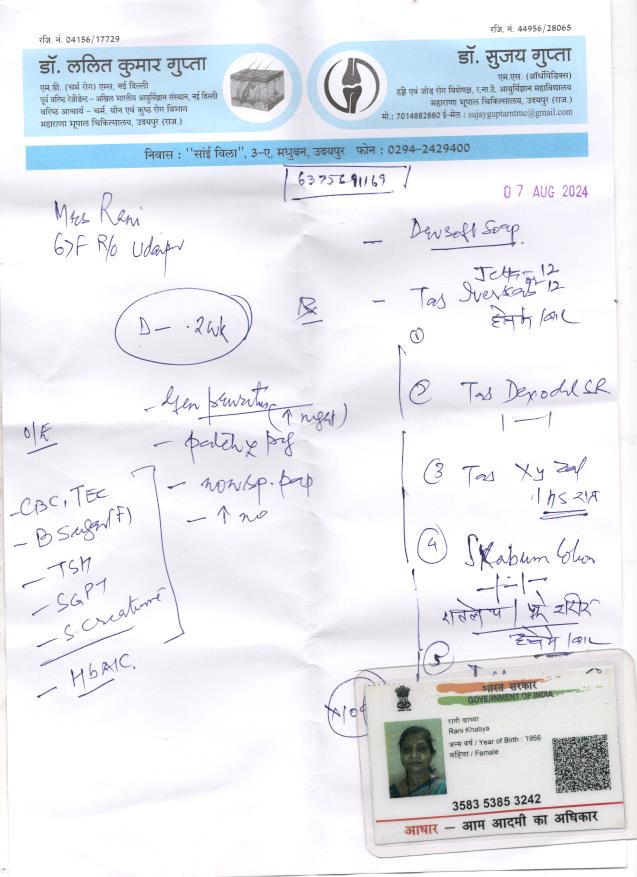 रजि. नं. 04156/17729
डॉ. ललित कुमार गुप्ता
एम.डी. (चर्म रोग) एम्स, नई दिल्ली
पूर्व वरिष्ठ रेजीडेन्ट - अखिल भारतीय आयुर्विज्ञान संस्थान, नई दिल्ली
वरिष्ठ आचार्य - चर्म, यौन एवं कुष्ठ रोग विभाग
महाराणा भूपाल चिकित्सालय, उदयपुर (राज.)
रजि. नं. 44956/28065
डॉ. सुजय गुप्ता
एम.एस. (ऑर्थोपिडिक्स)
हड्डी एवं जोड़ रोग विशेषज्ञ, र.ना.टै. आयुर्विज्ञान महाविद्यालय
महाराणा भूपाल चिकित्सालय, उदयपुर (राज.)
मो.: 7014882880 ई-मेल : sujayguptarntmc@gmail.com
निवास : "सांई विला", 3-ए, मधुबन, उदयपुर फोन : 0294-2429400
6375691169
07 AUG 2024
Mrs Rani
67F R/o Udaipur
D - 2wk
- Gen pruritus (↑ night)
- ↑ no
O/E
- CBC, TEC
- B Sugar (F)
- TSH
- SGPT
- S. Creatinine
- HbA1C
Soap
Rx
- Tab 12
12
①
② Tab SR
1—1
③ Tab Xyzal
1 HS रात
④ Skabum lotion
5
भारत सरकार
GOVERNMENT OF INDIA
रानी खाब्या
Rani Khabya
जन्म वर्ष / Year of Birth : 1956
महिला / Female
3583 5385 3242
आधार - आम आदमी का अधिकार